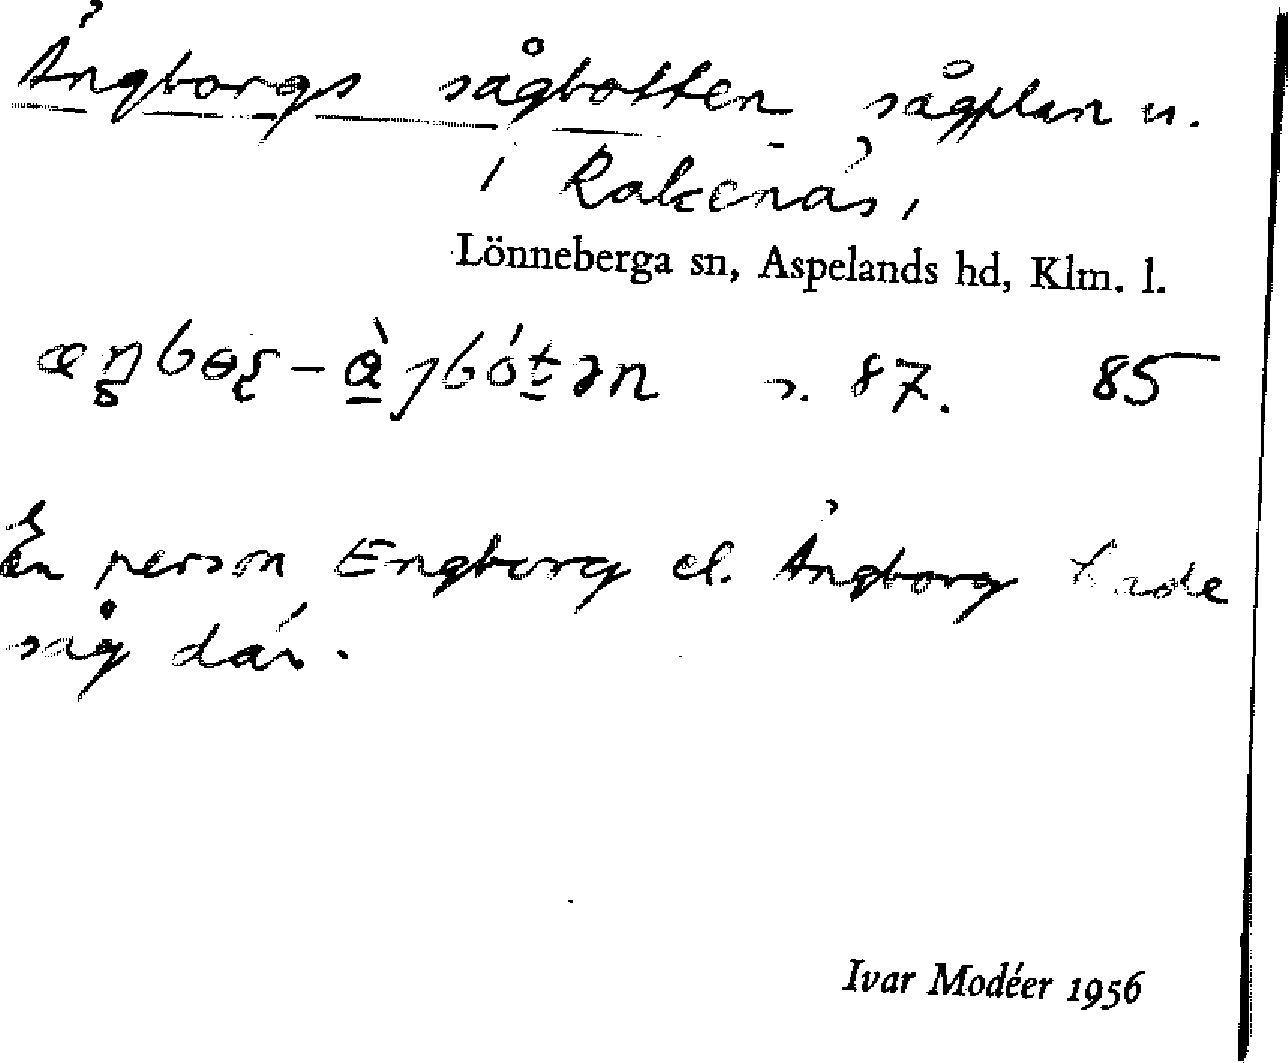 Ängborgs sågbotten sågplan u.
i Rakenäs,
Lönneberga sn, Aspelands hd, Klm. l.
s. 87. 85
En person Engborg el. Ängborg hade
såg där.
Ivar Modéer 1956